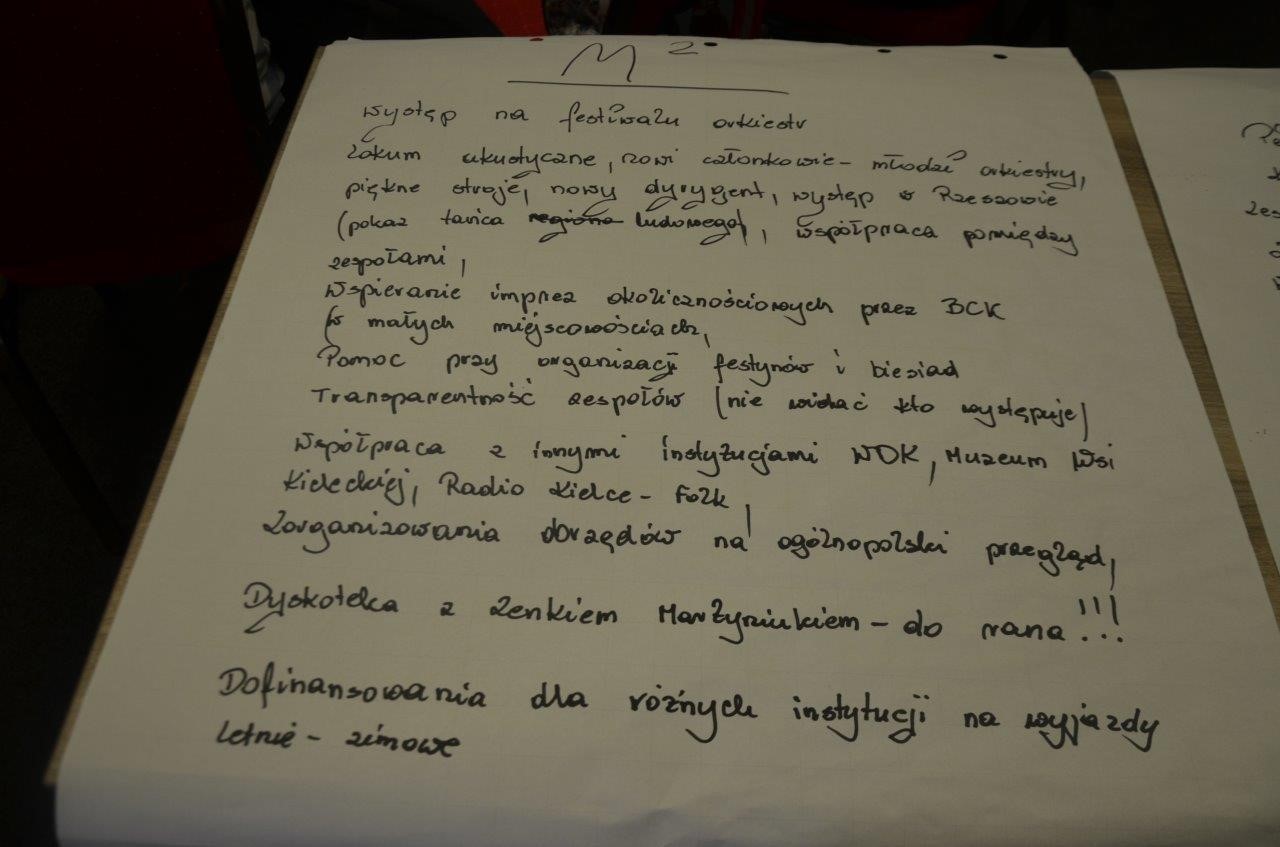 M²
Występ na festiwalu orkiestr
Zakup akustyczne, nowi członkowie - młodzi orkiestry,
piękne stroje, nowy dyrygent, występ w Rzeszowie
(pokaz tańca regiona ludowego), współpraca pomiędzy
zespołami,
Wspieranie imprez okolicznościowych przez BCK
w małych miejscowościach,
Pomoc przy organizacji festynów i biesiad
Transparentność zespołów (nie widać kto występuje)
Współpraca z innymi instytucjami WDK, Muzeum Wsi
Kieleckiej, Radio Kielce - Folk,
Zorganizowania obrzędów na ogólnopolski przegląd,
Dyskoteka z Zenkiem Martyniukiem - do rana!!!
Dofinansowania dla różnych instytucji na wyjazdy
letnie - zimowe